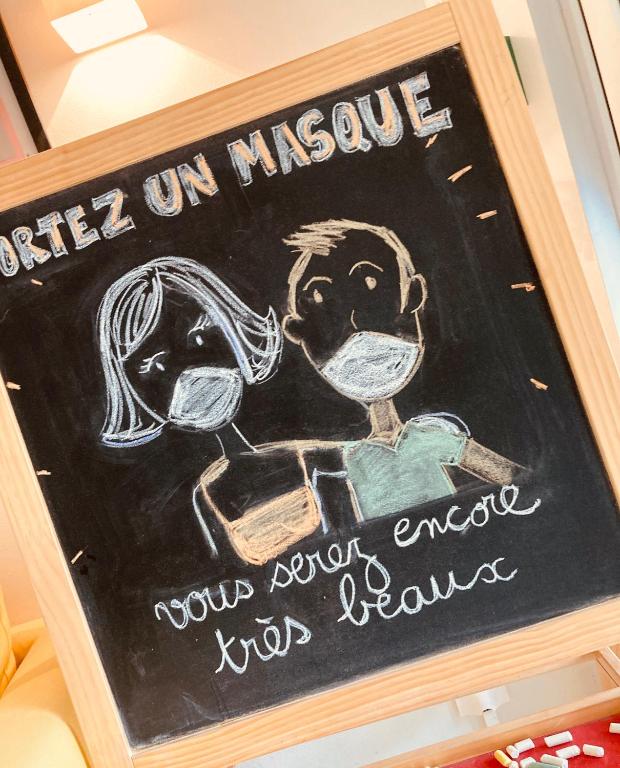 ORTEZ UN MASQUE
vous serez encore
très beaux